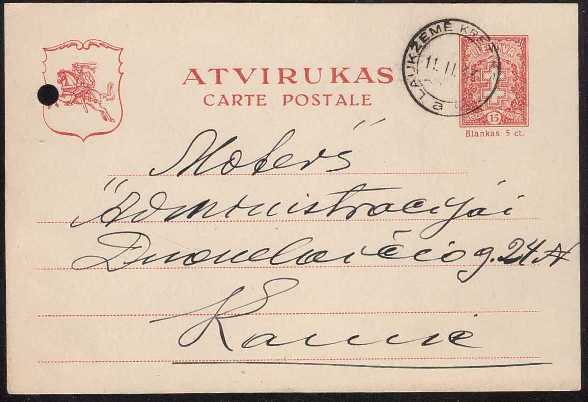 ATVIRUKAS
CARTE POSTALE
LAUKŽEMĖ
11. II.
a
15
Blankas 5 ct.
„Moters“
Administracijai
Duonelaičio g. 24 №
Kaune